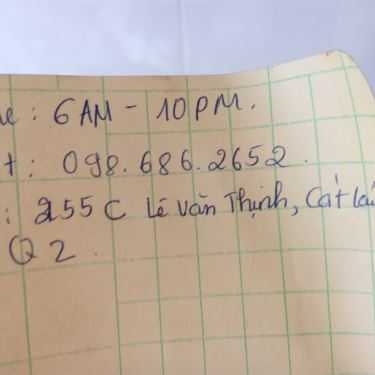 e: 6AM - 10PM.
t: 098.686.2652.
: 255C Lê Văn Thịnh, Cát Lái
Q2.